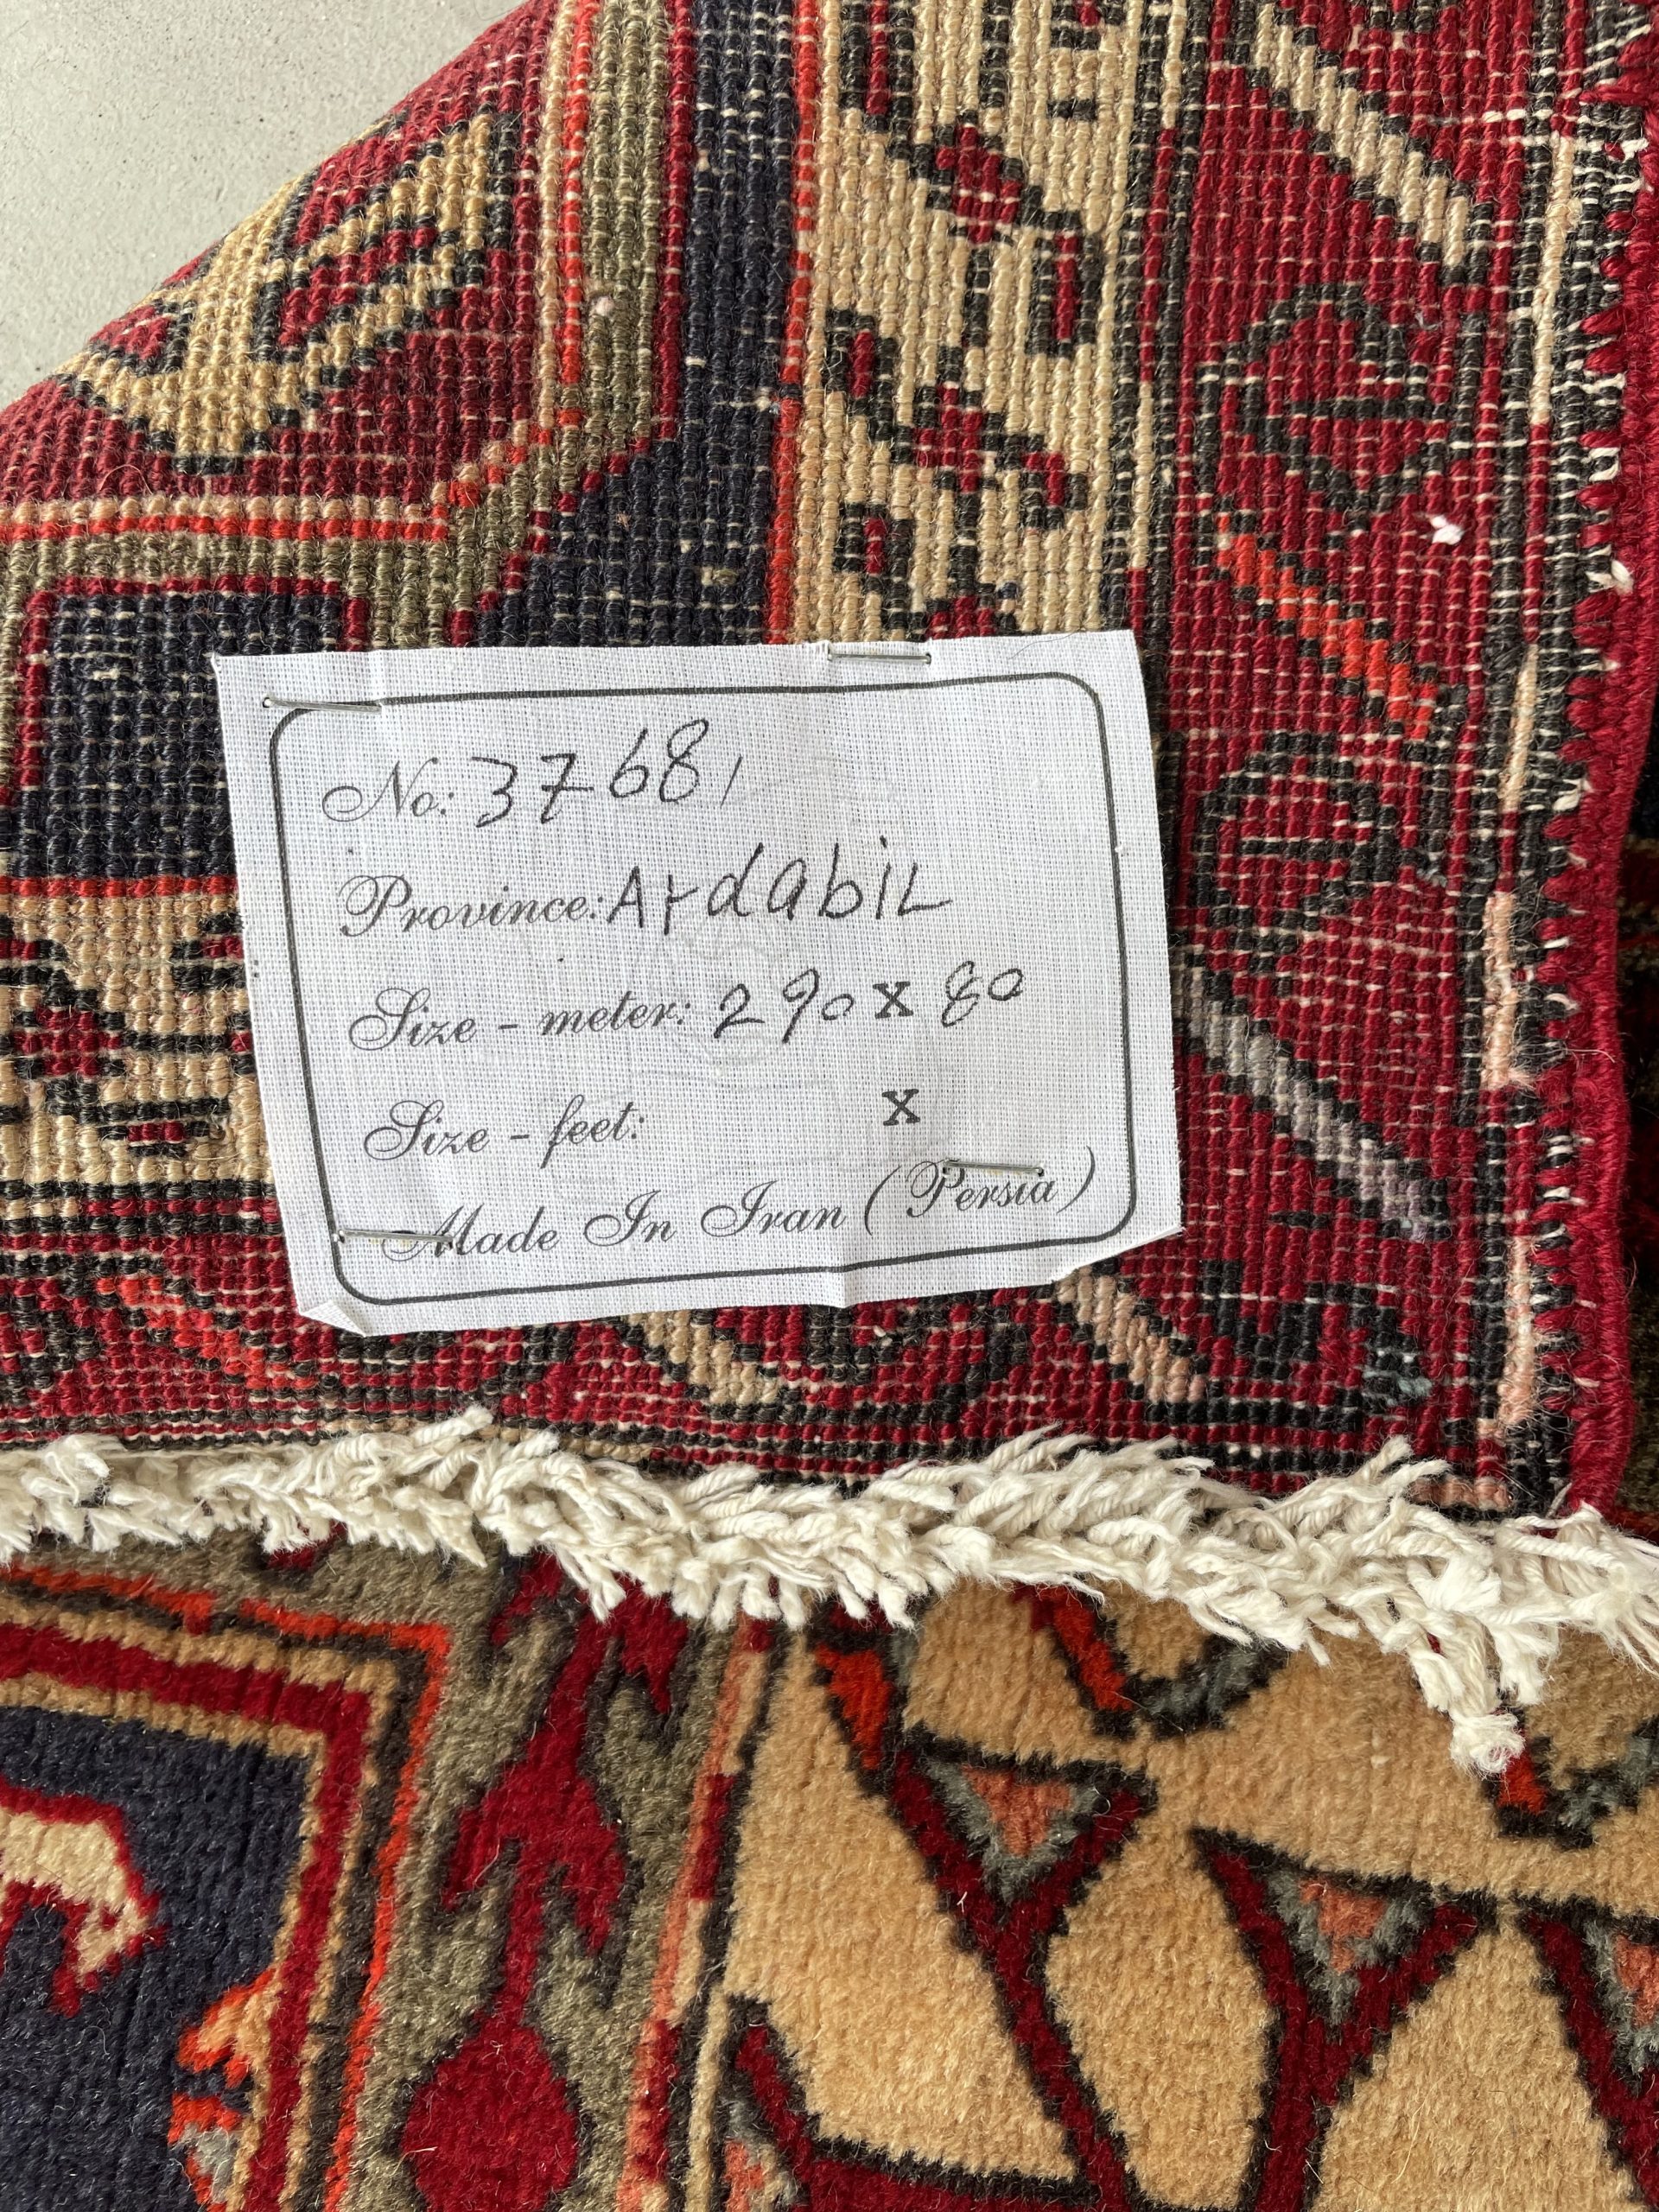 No: 37681
Province: Ardabil
Size - meter: 290 x 80
Size - feet: x
Made In Iran (Persia)